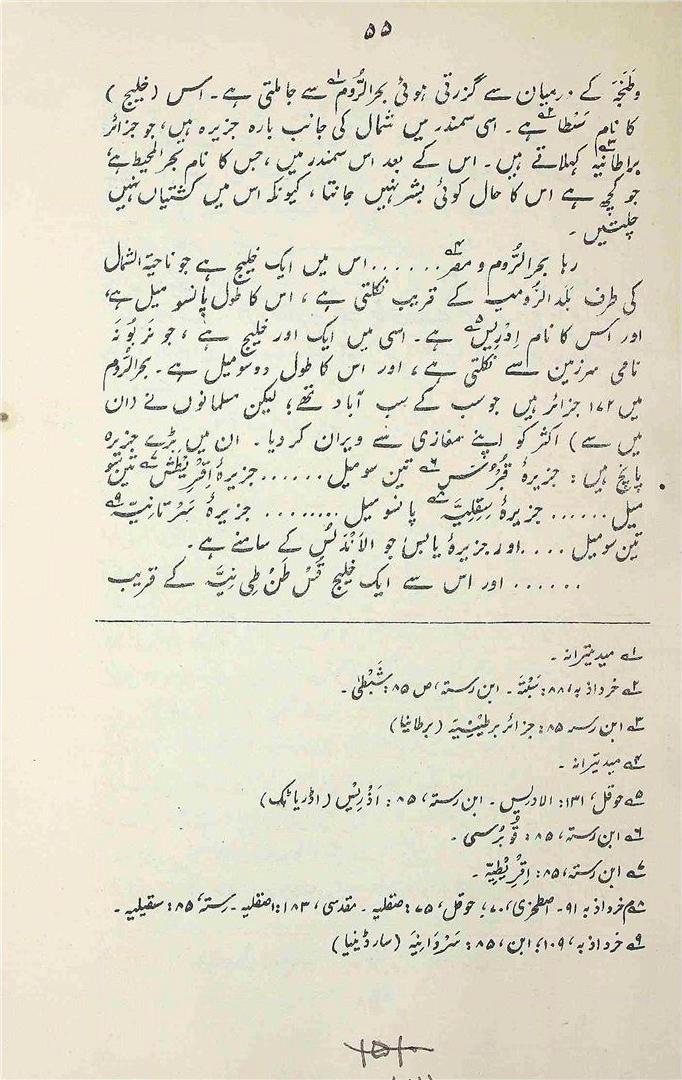 ۵۵
وطَنجَہ کے درمیان سے گزرتی ہوئی بحرالرُّوم۱؎ سے جا ملتی ہے۔ اس (خلیج)
کا نام سَنطا۲؎ ہے۔ اسی سمندر میں شمال کی جانب بارہ جزیرہ ہیں، جو جزائر
براطانیہ۳؎ کہلاتے ہیں۔ اس کے بعد اس سمندر میں، جس کا نام بحرالمحیط ہے،
جو کچھ ہے اس کا حال کوئی بشر نہیں جانتا، کیونکہ اس میں کشتیاں نہیں
چلتیں۔
رہا بحرالرُّوم و مصر۴؎ ...... اس میں ایک خلیج ہے جو ناحیۃ الشمال
کی طرف بلد الرُّومیہ کے قریب نکلتی ہے، اس کا طول پانسو میل ہے،
اور اس کا نام اِدْرِیس۵؎ ہے۔ اسی میں ایک اور خلیج ہے، جو نَربُونَہ
نامی سرزمین سے نکلتی ہے، اور اس کا طول دو سو میل ہے۔ بحرالرُّوم
میں ۱۷۲ جزائر ہیں جو سب کے سب آباد تھے؛ لیکن مسلمانوں نے (ان
میں سے) اکثر کو اپنے مغازی سے ویران کر دیا۔ ان میں بڑے جزیرہ
پانچ ہیں: جزیرۂ قُبْرُس۶؎ تین سو میل ...... جزیرۂ اِقْرِیْطَش۷؎ تین سو
میل ...... جزیرۂ سِقِلِیَّہ۸؎ پانسو میل ........ جزیرۂ سَرْتانِیَّہ۹؎
تین سو میل .... اور جزیرۂ یابس، جو الاَندَلُس کے سامنے ہے۔
...... اور اس سے ایک خلیج قُس طَنْ طِی نِیَّہ کے قریب
۱؎ میدیترانہ۔
۲؎ خرداذبہ، ۸۸: سَبْتَہ۔ ابن رستہ، ص ۸۵: شَبْطیٰ۔
۳؎ ابن رسہ ۸۵: جزائر برطینیہ (برطانیا)
۴؎ میدیترانہ۔
۵؎ حوقل، ۱۳۱: الادریس۔ ابن رستہ، ۸۵: اَذْرِیْس (اڈریاٹک)
۶؎ ابن رستہ، ۸۵: قُوبُرسی۔
۷؎ ابن رستہ، ۸۵: اِقْرِیْطِیَہ۔
۸؎ خرداذبہ ۹۱۔ اصطخری، ۷۰؛ حوقل، ۷۵: صقلیہ۔ مقدسی، ۱۸۳: اصقلیہ۔ رستہ، ۸۵: سقیلیہ۔
۹؎ خرداذبہ، ۱۰۹؛ ابن، ۸۵: سَرْدَانِیَہ (سارڈینیا)